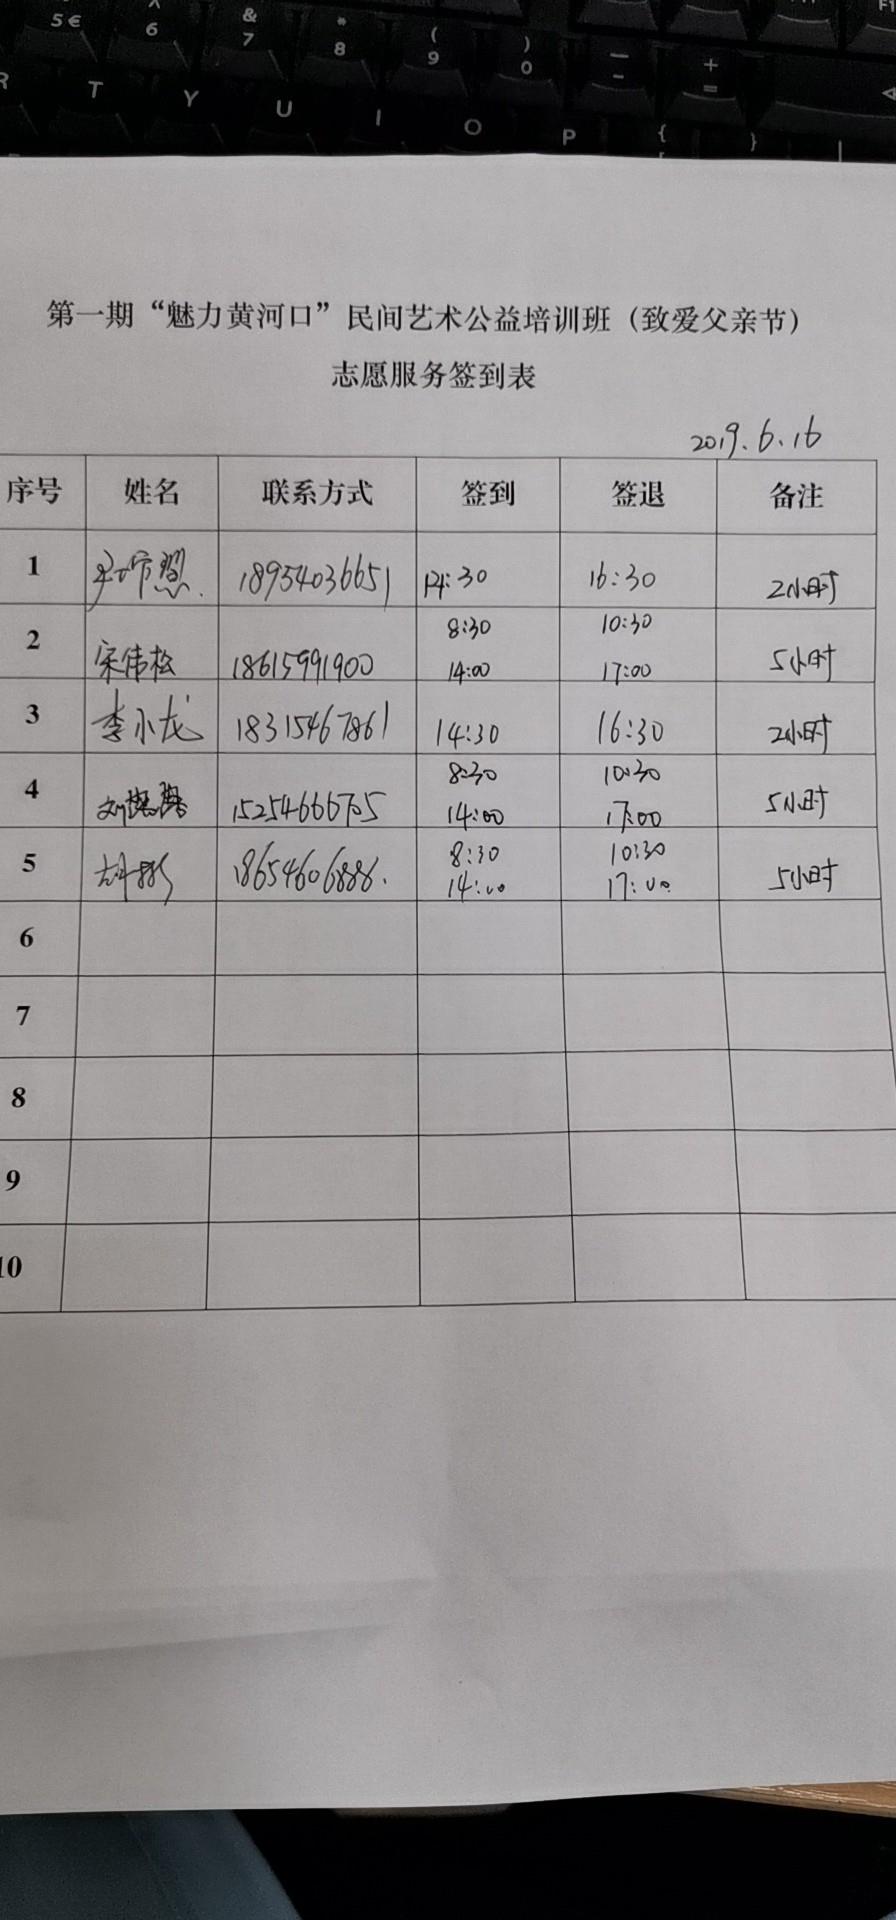 5 €
^ 6
& 7
* 8
( 9
) 0
— -
+ =
F1
R T Y U I O P { [ }
第一期“魅力黄河口”民间艺术公益培训班（致爱父亲节）
志愿服务签到表
2019.6.16
序号 姓名 联系方式 签到 签退 备注
1 18954036651 14:30 16:30 2小时
2 宋伟松 18615991900 8:30 14:00 10:30 17:00 5小时
3 李小龙 18315467861 14:30 16:30 2小时
4 15254666705 8:30 14:00 10:30 17:00 5小时
5 18654606886. 8:30 14:00 10:30 17:00 5小时
6
7
8
9
10